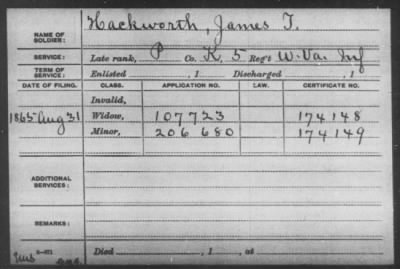 NAME OF SOLDIER: Hackworth, James T.
SERVICE: Late rank, P Co. K, 5 Reg't W. Va. Inf
TERM OF SERVICE: Enlisted , 1 Discharged , 1
DATE OF FILING. CLASS. APPLICATION NO. LAW. CERTIFICATE NO.
Invalid,
1865 Aug 31 Widow, 107723 174148
Minor, 206 680 174149
ADDITIONAL SERVICES:
REMARKS:
Died , 1 , at